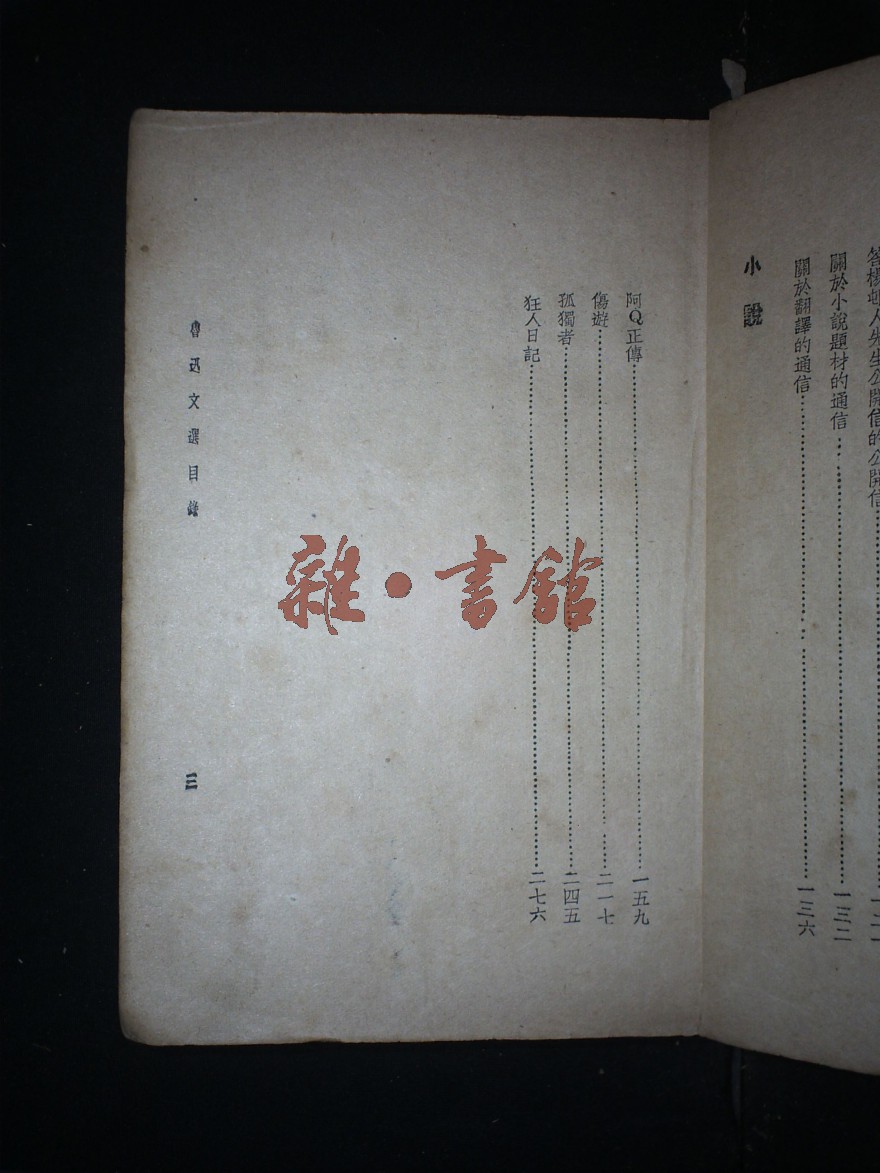 答楊邨人先生公開信的公開信
關於小說題材的通信……一三二
關於翻譯的通信……一三六
小說
阿Q正傳……一五九
傷遊……二一七
孤獨者……二四五
狂人日記……二七六
魯迅文選目錄
三
雜·書館